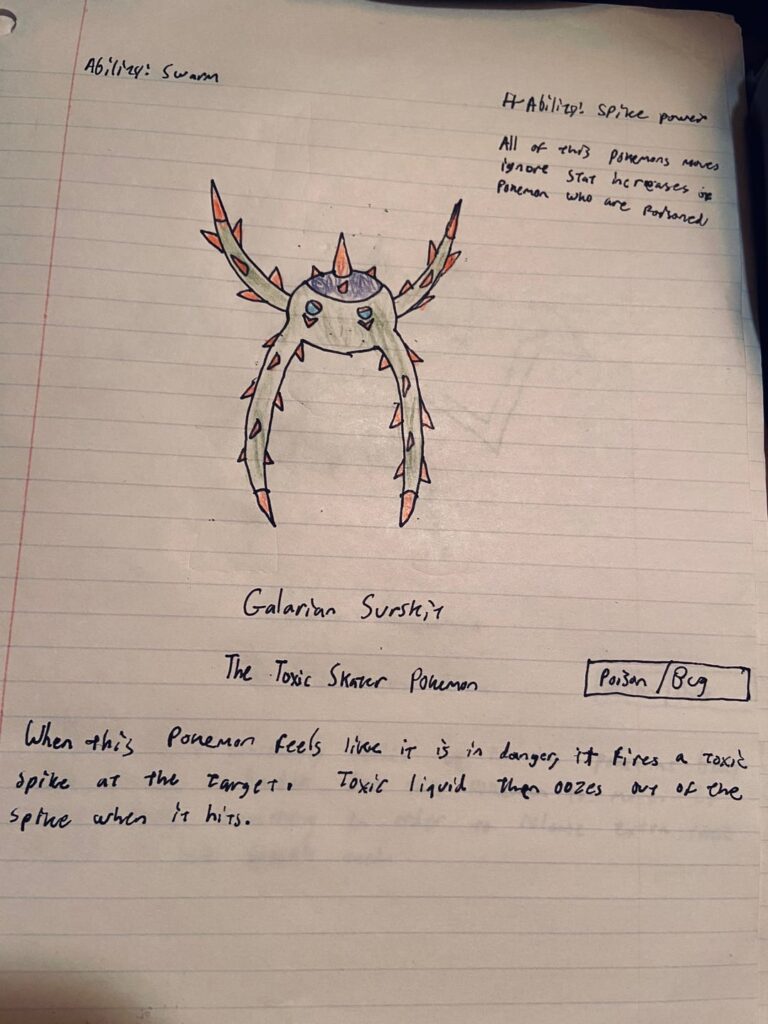 Ability: Swarm
H-Ability: Spike power
All of this Pokemons moves
ignore stat increases in
Pokemon who are Poisoned
Galarian Surskit
The Toxic Skater Pokemon
Poison/Bug
When this Pokemon feels like it is in danger, it fires a toxic
spike at the target. Toxic liquid then oozes out of the
spike when it hits.